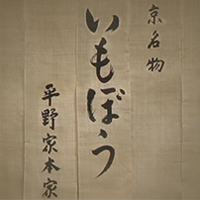 京名物
いもぼう
平野家本家